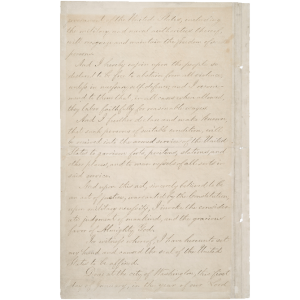 of the United States, including
the military and naval authorities thereof,
will recognize and maintain the freedom of said
persons.
And I hereby enjoin upon the people so
declared to be free to abstain from all violence,
unless in necessary self-defence; and I recom-
mend to them that, in all cases when allowed,
they labor faithfully for reasonable wages.
And I further declare and make known,
that such persons of suitable condition, will
be received into the armed service of the United
States to garrison forts, positions, stations, and
other places, and to man vessels of all sorts in
said service.
And upon this act, sincerely believed to be
an act of justice, warranted by the Constitution,
upon military necessity, I invoke the considerate
judgment of mankind, and the gracious
favor of Almighty God.
In witness whereof, I have hereunto set
my hand and caused the seal of the United
States to be affixed.
Done at the city of Washington, this first
day of January, in the year of our Lord